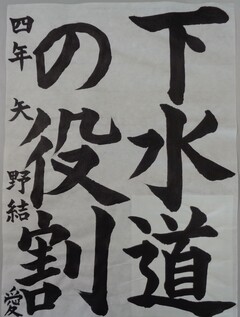 下水道
の役割
四年 矢野結愛